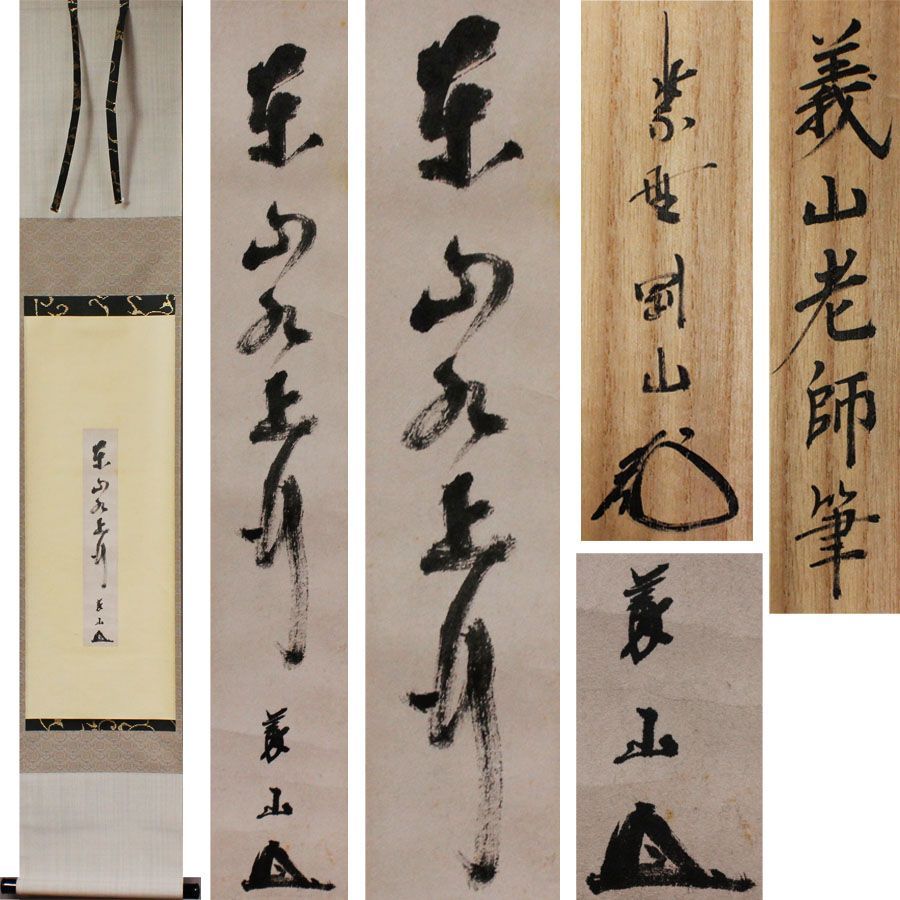 東山水上行
義山
東山水上行
義山
東山水上行
紫野剛山
義山
義山老師筆